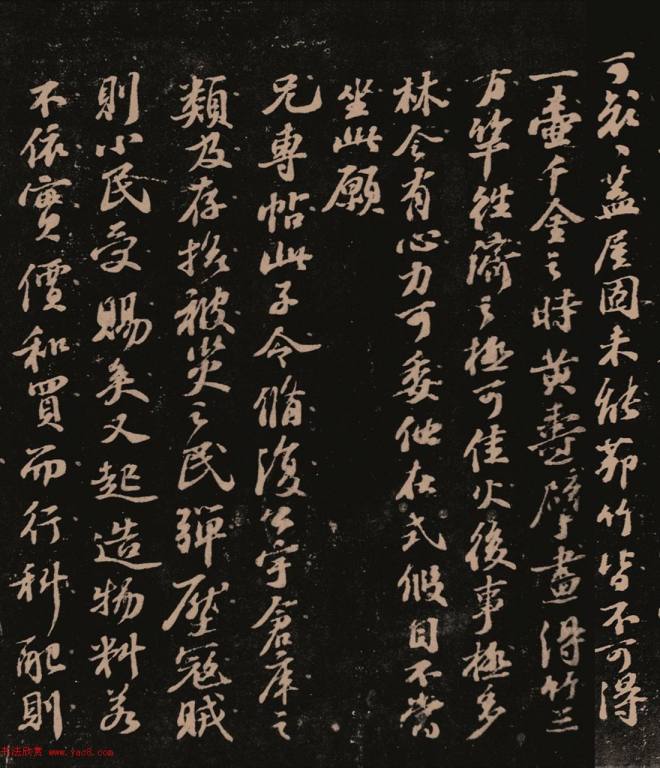 可哀〻蓋屋固未能茆竹皆不可得
一壺千金之時黃燾擘畫得竹三
万竿往濟之極可佳火後事極多
林令有心力可委他在式假自不當
坐此願
兄專帖此子令脩復公宇倉庫之
類及存撫被災之民彈壓寇賊
則小民受賜矣又起造物料若
不依實價和買而行科配則
书法欣赏 www.yac8.com